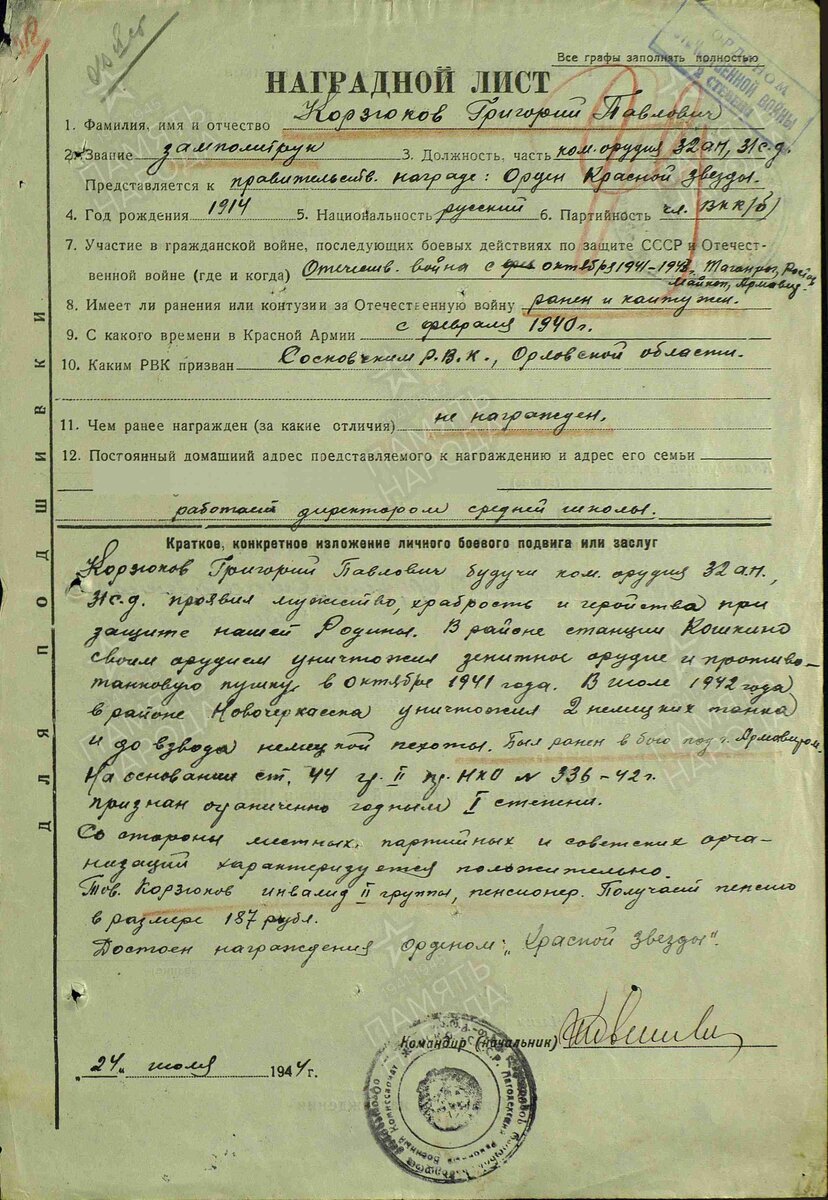 318
Все графы заполнять полностью
ОРДЕНОМ
ОТЕЧЕСТВЕННОЙ ВОЙНЫ
II СТЕПЕНИ
НАГРАДНОЙ ЛИСТ
1. Фамилия, имя и отчество Корзюков Григорий Павлович
2. Звание замполитрук 3. Должность, часть ком. орудия 32 ап, 31 с.д.
Представляется к правительств. награде: Орден Красной звезды.
4. Год рождения 1914 5. Национальность русский 6. Партийность чл. ВКП(б)
7. Участие в гражданской войне, последующих боевых действиях по защите СССР и Отечест-
венной войне (где и когда) Отечеств. война с октября 1941-1943г. Таганрог, Ростов
Майкоп, Армавир.
8. Имеет ли ранения или контузии за Отечественную войну ранен и контужен.
9. С какого времени в Красной Армии с февраля 1940 г.
10. Каким РВК призван Р.В.К., Орловской области.
11. Чем ранее награжден (за какие отличия) не награжден.
12. Постоянный домашний адрес представляемого к награждению и адрес его семьи
работает директором средней школы.
Краткое, конкретное изложение личного боевого подвига или заслуг
Корзюков Григорий Павлович будучи ком. орудия 32 ап.,
31 с.д. проявил мужество, храбрость и геройства при
защите нашей Родины. В районе станции Кошкино
своим орудием уничтожил зенитное орудие и противо-
танковую пушку в октябре 1941 года. В июле 1942 года
в районе Новочеркасска уничтожил 2 немецких танка
и до взвода немецкой пехоты. Был ранен в бою под г. Армавиром.
На основании ст. 44 гр. II пр. НКО № 336-42 г.
признан ограниченно годным I степени.
Со стороны местных партийных и советских орга-
низаций характеризуется положительно.
Тов. Корзюков инвалид II группы, пенсионер. Получает пенсию
в размере 187 рубл.
Достоен награждения орденом: „Красной звезды".
Командир (начальник)
"24" июля 1944 г.
ДЛЯ ПОДШИВКИ
ПАМЯТЬ НАРОДА